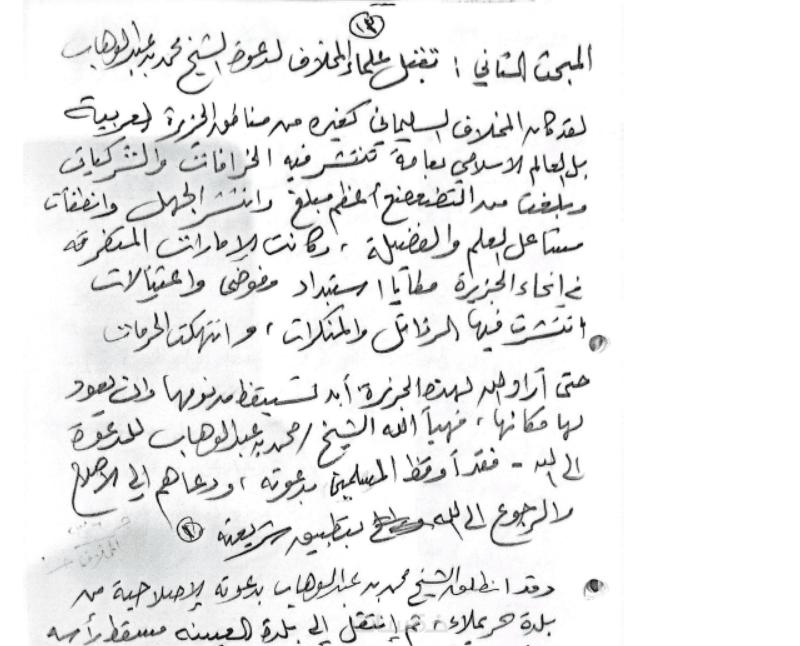 ١٣
المبحث الثاني : تقبل علماء المخلاف لدعوة الشيخ محمد بن عبدالوهاب
لقد كان المخلاف السليماني كغيره من مناطق الجزيرة العربية
بل العالم الاسلامي بعامة تنتشر فيه الخرافات والشركيات
وبلغت من التضعضع أعظم مبلغ وانتشر الجهل وانطفأت
مشاعل العلم والفضيلة ، وكانت الإمارات المتفرقة
في انحاء الجزيرة مطايا استبداد وفوضى واغتيالات
انتشرت فيها الرذائل والمنكرات ، وانتهكت الحرمات
حتى أراد الله لهذه الجزيرة أن تستيقظ من نومها وان يعود
لها مكانها ، فهيأ الله الشيخ / محمد بن عبدالوهاب للدعوة
الى الله - فقد أوقظ المسلمين بدعوته ، ودعاهم الى الاصلاح
والرجوع الى الله بتطبيق شريعته ٢
وقد انطلق الشيخ محمد بن عبدالوهاب بدعوته الإصلاحية من
بلدة حريملاء ، ثم إنتقل إلى بلدة العيينه مسقط رأسه